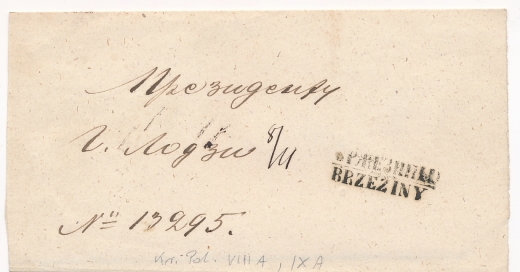 Президенту
г. Лодзи 8/III
БРЖЕЗИНЫ
BRZEZINY
№ 13295.
Kr. Pol. VIII A, IX A